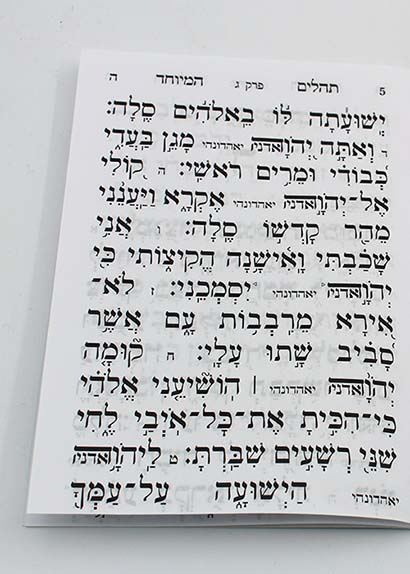 5 תהלים פרק ג המיוחד ה
יְשׁוּעָ֓תָה לּ֬וֹ בֵֽאלֹהִ֬ים סֶֽלָה׃
ד וְאַתָּ֣ה יְ֭הֹוָאדניה יאהדונהי מָגֵ֣ן בַּעֲדִ֑י
כְּ֝בוֹדִ֗י וּמֵרִ֥ים רֹאשִֽׁי׃ ה ק֭וֹלִי
אֶל־יְהֹוָ֣אדניה יאהדונהי אֶקְרָ֑א וַיַּֽעֲנֵ֨נִי
מֵהַ֖ר קָדְשׁ֣וֹ סֶֽלָה׃ ו אֲנִ֥י
שָׁכַ֗בְתִּי וָֽאִ֫ישָׁ֥נָה הֱקִיצ֑וֹתִי כִּ֖י
יְהֹוָ֣אדניה יאהדונהי יִסְמְכֵֽנִי׃ ז לֹֽא־
אִ֭ירָא מֵרִבְב֥וֹת עָ֑ם אֲשֶׁ֥ר
סָ֝בִ֗יב שָׁ֣תוּ עָלָֽי׃ ח ק֘וּמָ֤ה
יְהֹוָ֨אדניה יאהדונהי | הוֹשִׁ֘יעֵ֤נִי אֱלֹהַ֗י
כִּֽי־הִכִּ֣יתָ אֶת־כָּל־אֹיְבַ֣י לֶ֑חִי
שִׁנֵּ֖י רְשָׁעִ֣ים שִׁבַּֽרְתָּ׃ ט לַֽיהֹוָ֥אדניה
יאהדונהי הַיְשׁוּעָ֑ה עַֽל־עַמְּךָ֖